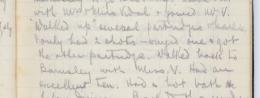 with Mrs Vidal & found Mr V.
Walked up several partridges & hares.
I only had 2 shots - missed one & got
the other partridge. Walked back to
Barnsley with Miss V. Had an
excellent tea. Had a hot bath &